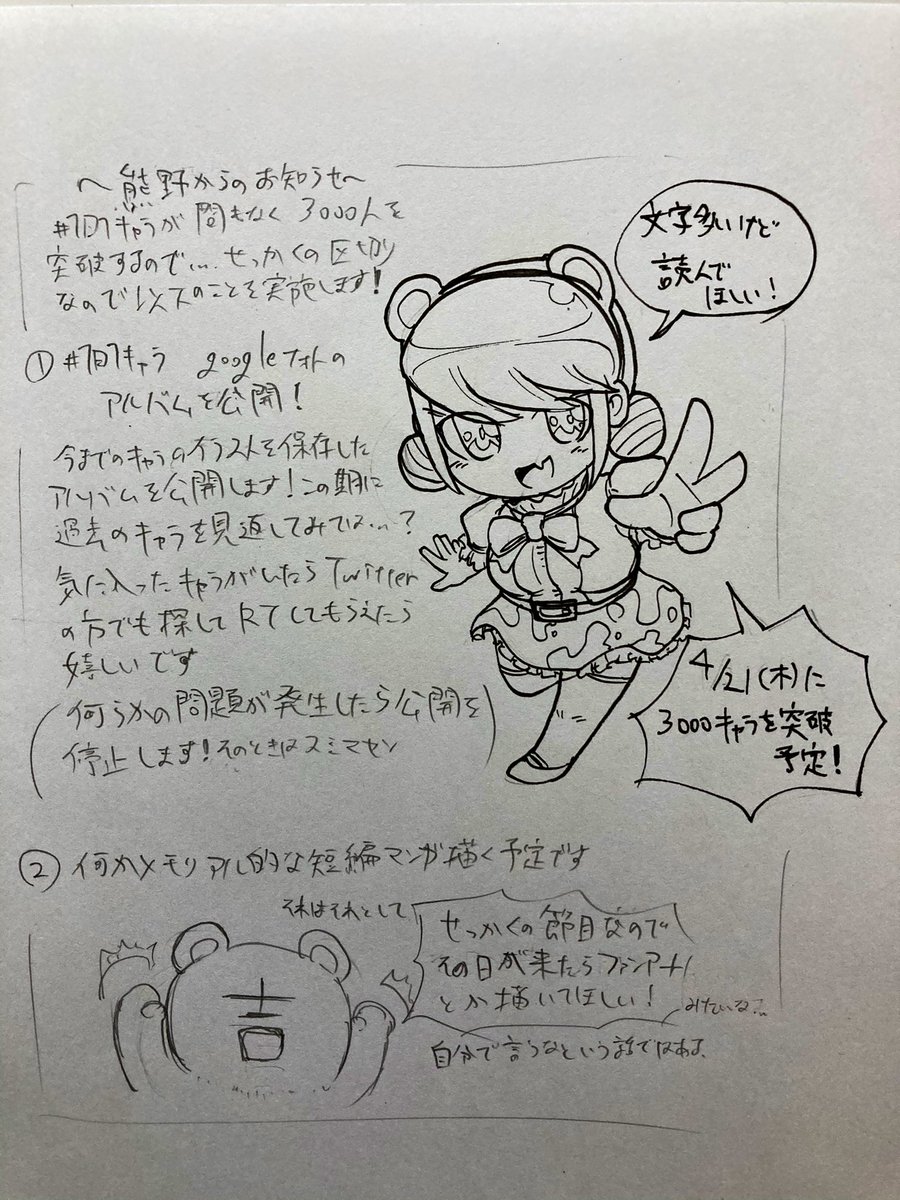 〜熊野からのお知らせ〜
#1日1キャラが間もなく3000人を
突破するので…せっかくの区切り
なので以下のことを実施します!
文字多いけど
読んで
ほしい!
① #1日1キャラ googleフォトの
アルバムを公開!
今までのキャラのイラストを保存した
アルバムを公開します!この期に
過去のキャラを見返してみては…?
気に入ったキャラがいたらTwitter
の方でも探してRTしてもらえたら
嬉しいです
(何らかの問題が発生したら公開を
停止します!そのときはスミマセン)
4/21(木)に
3000キャラを突破
予定!
② 何かメモリアル的な短編マンガ描く予定です
それはそれとして
せっかくの節目なので
その日が来たらファンアート
とか描いてほしい!
みたいな…
自分で言うなという話ではある、
吉